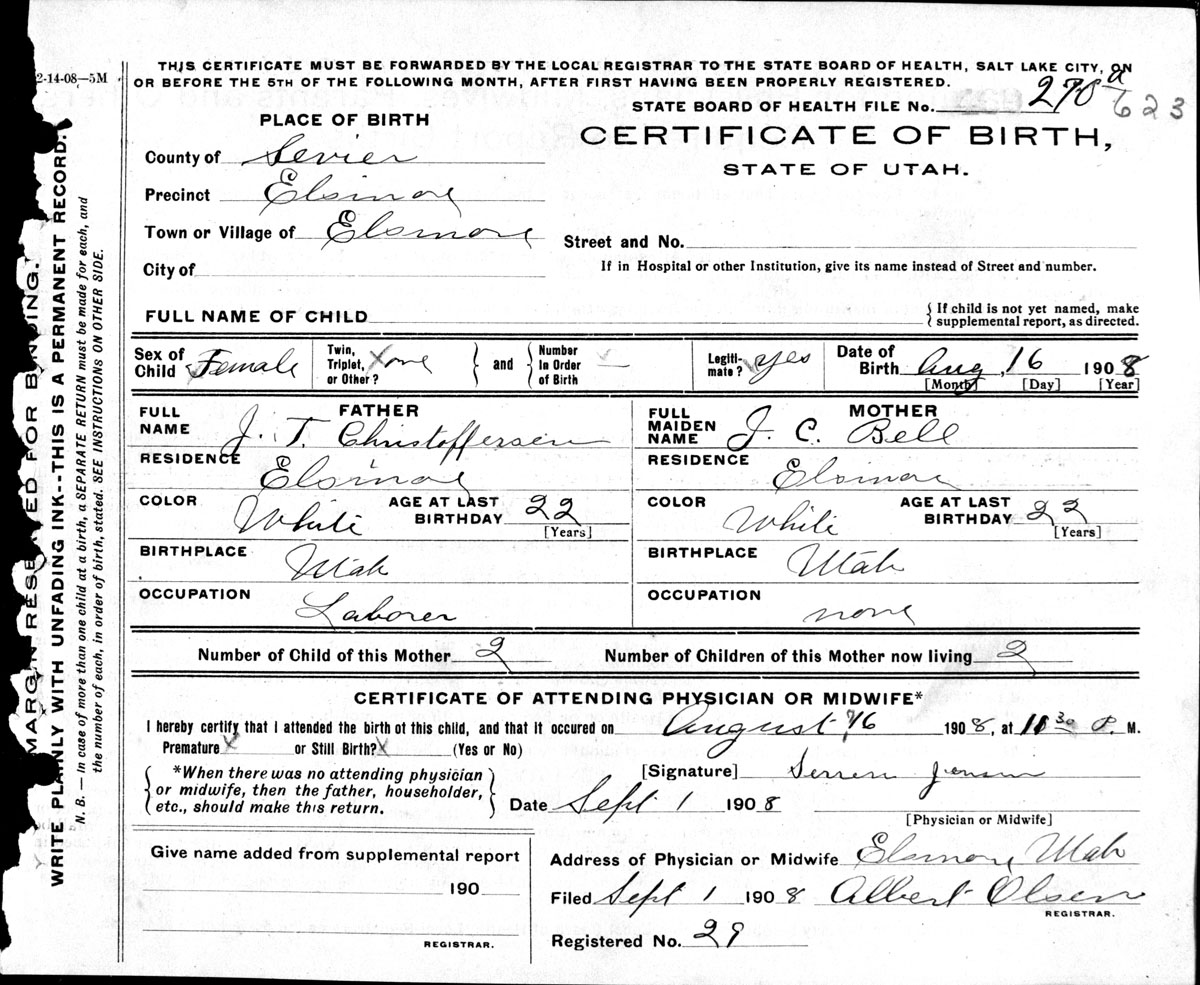 2-14-08—5M
THIS CERTIFICATE MUST BE FORWARDED BY THE LOCAL REGISTRAR TO THE STATE BOARD OF HEALTH, SALT LAKE CITY, ON
OR BEFORE THE 5TH OF THE FOLLOWING MONTH, AFTER FIRST HAVING BEEN PROPERLY REGISTERED.
STATE BOARD OF HEALTH FILE No. 270 a
623
PLACE OF BIRTH
CERTIFICATE OF BIRTH,
STATE OF UTAH.
County of Sevier
Precinct Elsinore
Town or Village of Elsinore
Street and No.
City of
If in Hospital or other Institution, give its name instead of Street and number.
FULL NAME OF CHILD
{ If child is not yet named, make
supplemental report, as directed.
Sex of Child Female
Twin, Triplet, or Other? X one
and
Number In Order of Birth —
Legiti-mate? yes
Date of Birth Aug, 16 1908
[Month] [Day] [Year]
FATHER
FULL NAME J. T. Christoffersen
RESIDENCE Elsinore
COLOR White
AGE AT LAST BIRTHDAY 22
[Years]
BIRTHPLACE Utah
OCCUPATION Laborer
MOTHER
FULL MAIDEN NAME J. C. Bell
RESIDENCE Elsinore
COLOR White
AGE AT LAST BIRTHDAY 22
[Years]
BIRTHPLACE Utah
OCCUPATION none
Number of Child of this Mother 2 Number of Children of this Mother now living 2
CERTIFICATE OF ATTENDING PHYSICIAN OR MIDWIFE*
I hereby certify that I attended the birth of this child, and that it occured on August 16 1908, at 11 30 P. M.
Premature X or Still Birth? X (Yes or No)
*When there was no attending physician
or midwife, then the father, householder,
etc., should make this return.
[Signature] Jensen
Date Sept 1 1908
[Physician or Midwife]
Give name added from supplemental report
190
REGISTRAR.
Address of Physician or Midwife Elsinore Utah
Filed Sept 1 1908 Albert Olsen
REGISTRAR.
Registered No. 29
MARGIN RESERVED FOR BINDING.
WRITE PLAINLY WITH UNFADING INK--THIS IS A PERMANENT RECORD.
N. B. — In case of more than one child at a birth, a SEPARATE RETURN must be made for each, and
the number of each, in order of birth, stated. SEE INSTRUCTIONS ON OTHER SIDE.